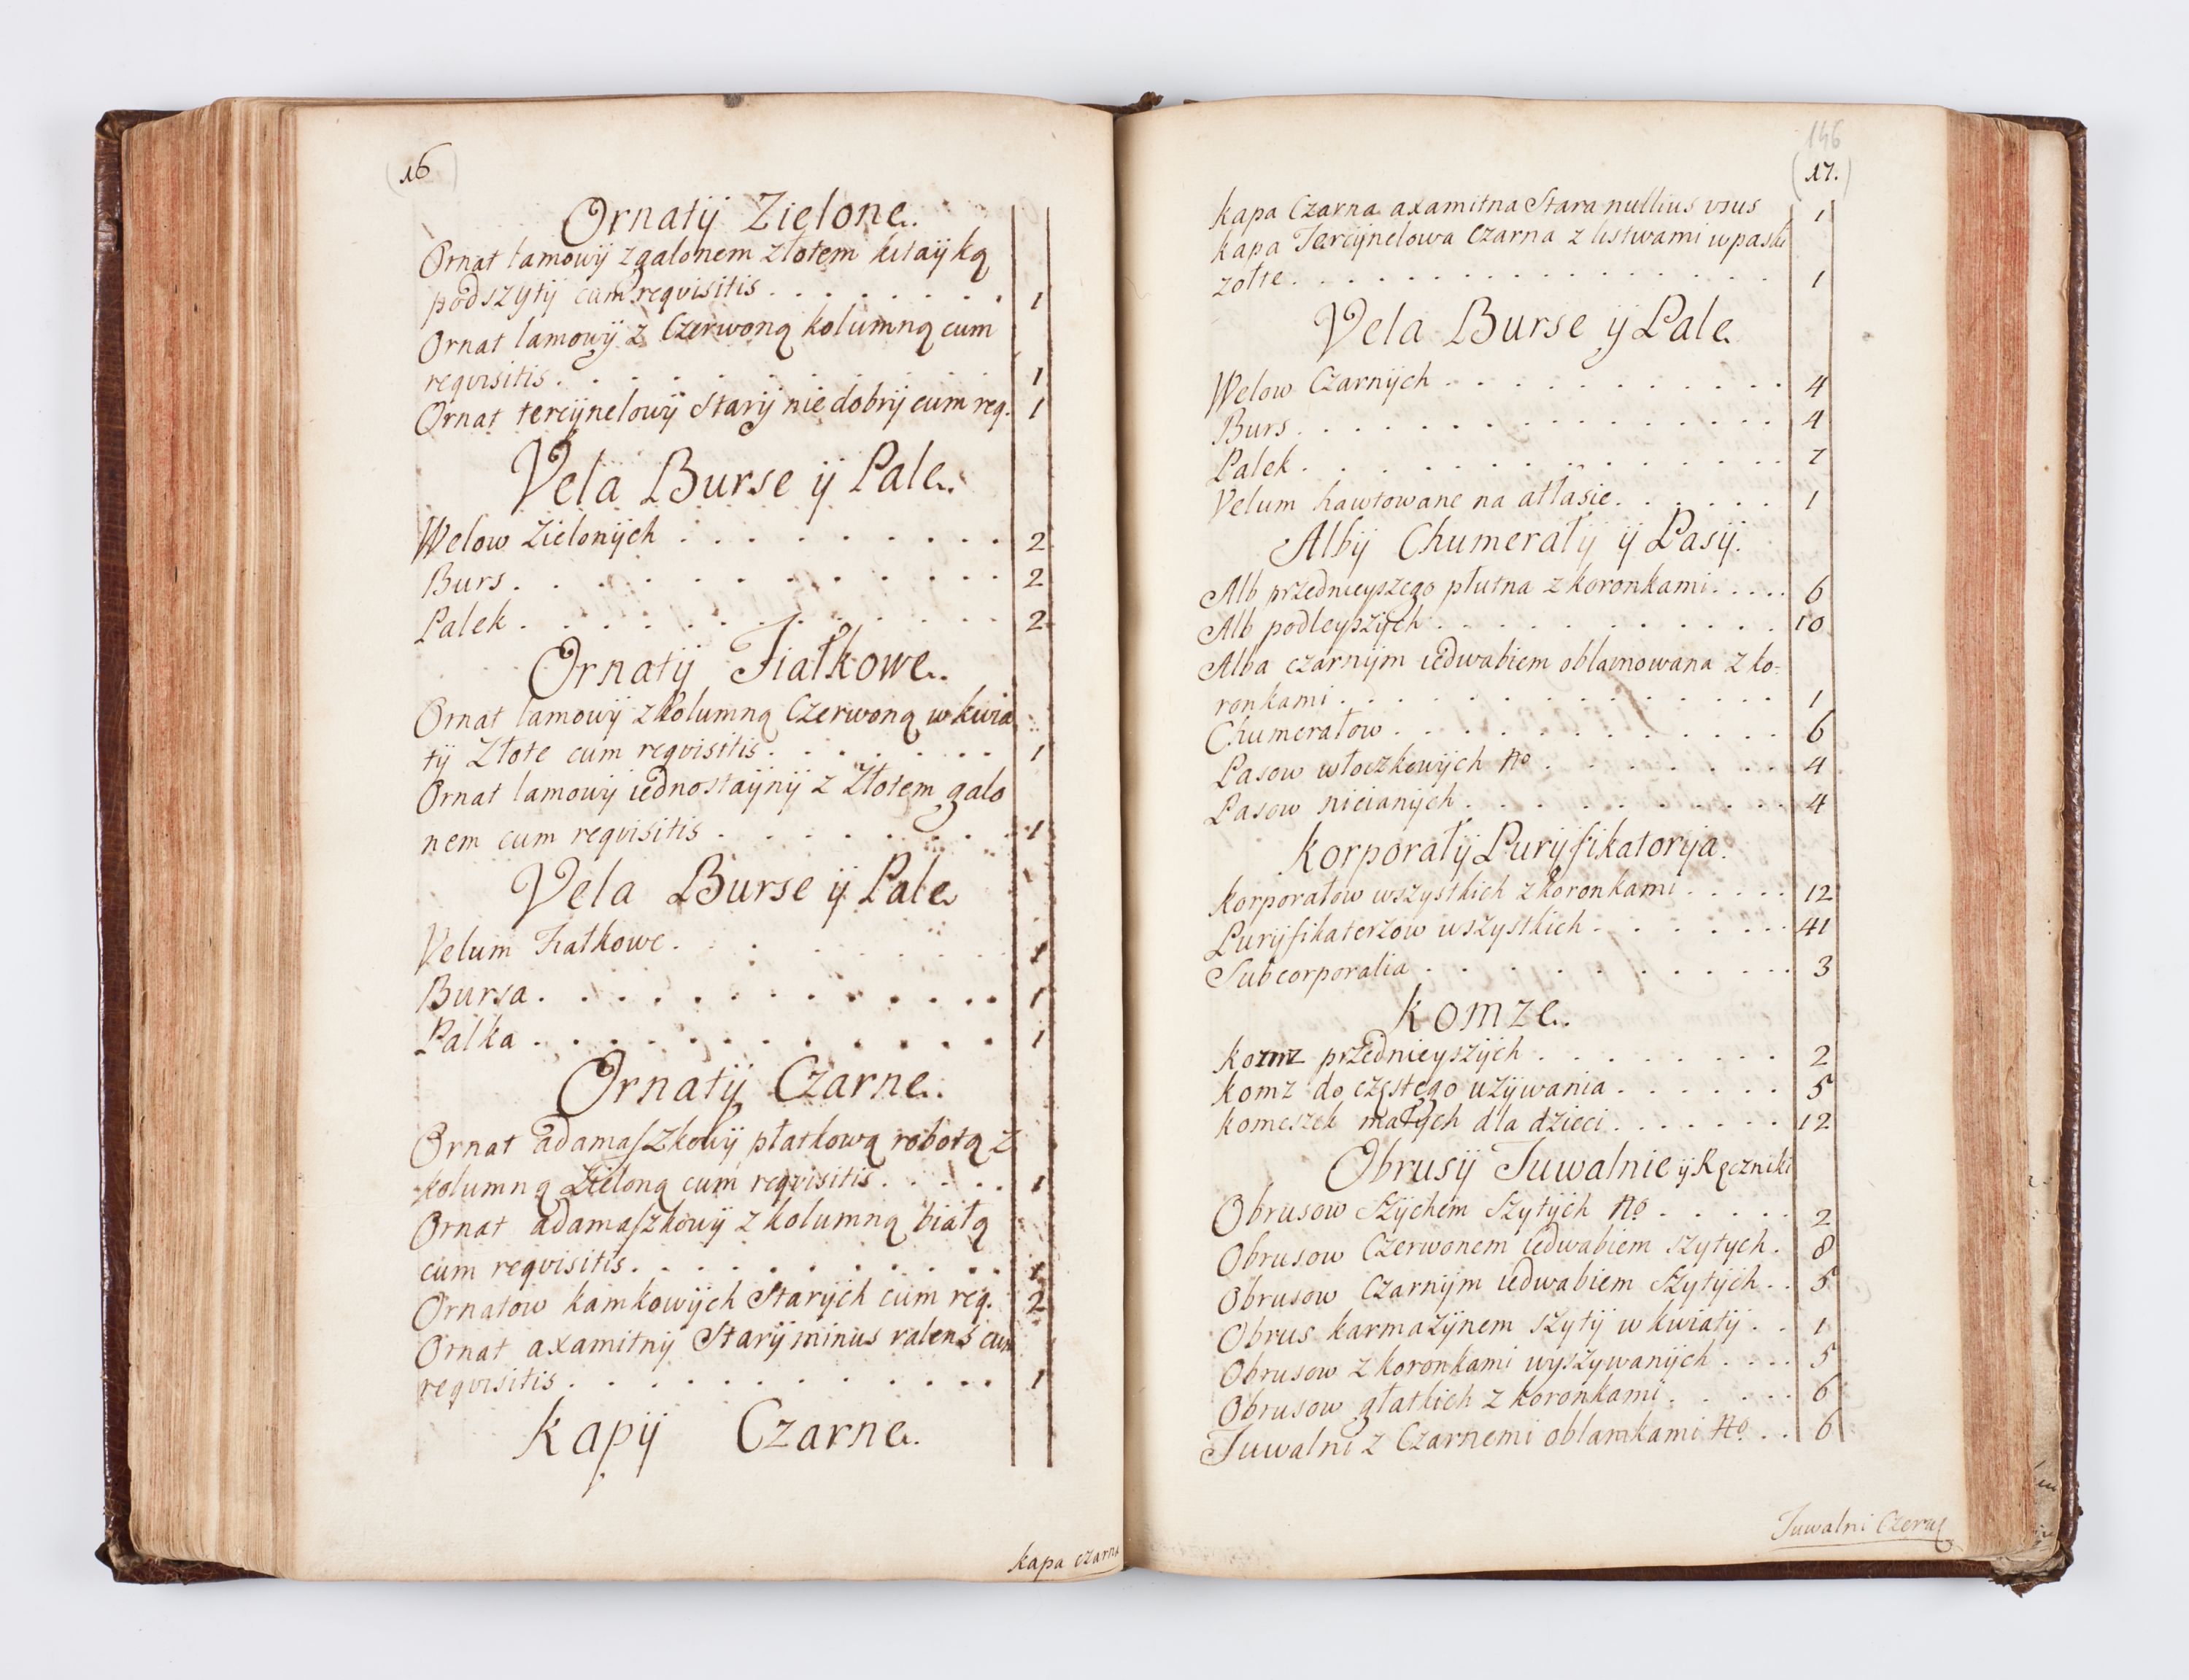 (16)
Ornatÿ Zielone.
Ornat lamowÿ z galonem złotem kitaÿką
podszytÿ cum reqvisitis . . . . . . . . 1
Ornat lamowÿ z Czerwoną kolumną cum
reqvisitis . . . . . . . . . . . 1
Ornat tercÿnelowÿ Starÿ nie dobrÿ cum req. 1
Vela Burse ÿ Pale.
Welow Zielonÿch . . . . . . . . . 2
Burs . . . . . . . . . . . . 2
Palek . . . . . . . . . . . . 2
Ornatÿ Fiałkowe.
Ornat lamowÿ z kolumną Czerwoną w kwia
tÿ Złote cum reqvisitis . . . . . . 1
Ornat lamowÿ iednostaÿnÿ z Złotem galo
nem cum reqvisitis . . . . . . . . 1
Vela Burse ÿ Pale
Velum Fiałkowe . . . . . . . . 1
Bursa . . . . . . . . . . . . 1
Palka . . . . . . . . . . . . 1
Ornatÿ Czarne.
Ornat adamaszkowÿ płatkową robotą z
kolumną Zieloną cum reqvisitis . . . . . 1
Ornat adamaszkowÿ z kolumną białą
cum reqvisitis . . . . . . . . . . 1
Ornatow kamkowÿch Starÿch cum req. 2
Ornat axamitnÿ Starÿ minus valens cum
reqvisitis . . . . . . . . . . . 1
kapÿ Czarne.
kapa czarna
146
(17.)
kapa Czarna axamitna Stara nullius vsus 1
kapa Tercÿnelowa czarna z listwami w paski
zołte . . . . . . . . . . . . . . 1
Vela Burse ÿ Pale
Welow Czarnÿch . . . . . . . . . . . 4
Burs . . . . . . . . . . . . . . . 4
Palek . . . . . . . . . . . . . . 7
Velum hawtowane na atłasie . . . . . . 1
Albÿ Chumerałÿ ÿ Pasÿ.
Alb przednieyszego płutna z koronkami . . . . . 6
Alb podleyszÿch . . . . . . . . . . . 10
Alba czarnÿm iedwabiem oblamowana z ko-
ronkami . . . . . . . . . . . . . . 1
Chumerałow . . . . . . . . . . . . 6
Pasow włoczkowÿch No . . . . . . . . 4
Pasow nicianÿch . . . . . . . . . . 4
korporałÿ Purÿfikatorÿa.
korporałow wszystkich z koronkami . . . . . 12
Purÿfikaterzow wszystkich . . . . . . . 41
Subcorporalia . . . . . . . . . . . . 3
komze.
komz przednieyszÿch . . . . . . . . 2
komz do częstego uzÿwania . . . . . . 5
komeszek małÿch dla dzieci . . . . . . . 12
Obrusÿ Tuwalnie ÿ Ręczniki
Obrusow Szÿchem Szytÿch No . . . . . 2
Obrusow Czerwonem iedwabiem szytych . 8
Obrusow Czarnÿm iedwabiem Szytÿch . . 5
Obrus karmazÿnem szytÿ w kwiatÿ . . 1
Obrusow z koronkami wyszÿwanÿch . . . . 5
Obrusow głatkich z koronkami . . . . . 6
Tuwalni z Czarnemi oblamkami No . . 6
Tuwalni Czerw